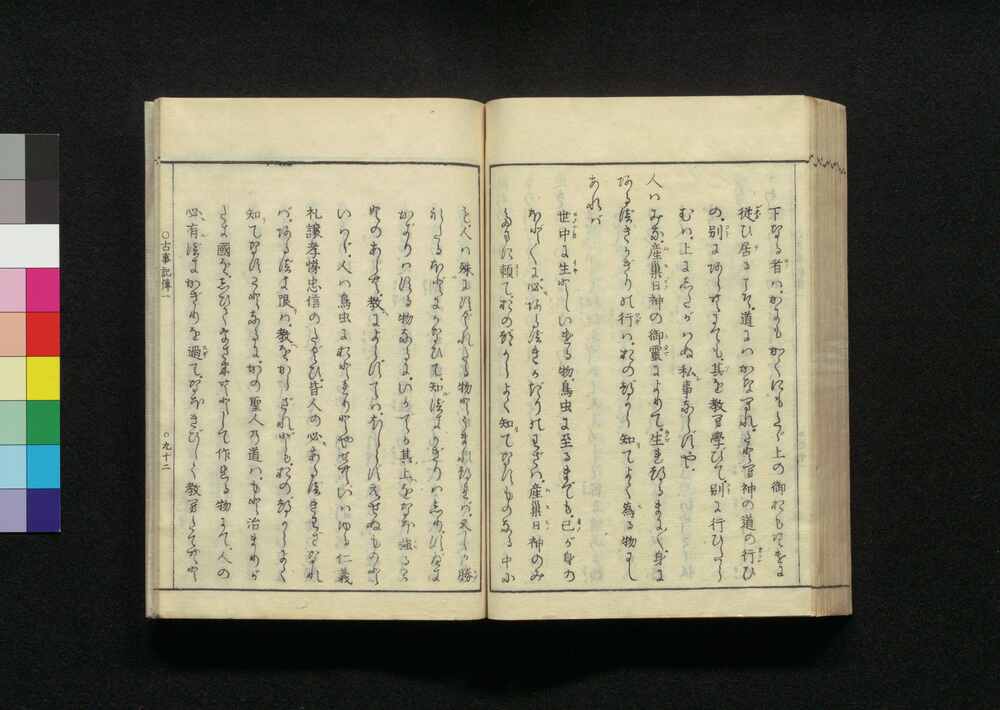 下なる者は、かにもかくにもたゞ上の御おもむけに
従ひ居るこそ、道にはかなへれ、たとへ神の道の行ひ
の、別にあらむにても、其を教へ學びて、別に行ひたら
むは、上にしたがはぬ私事ならずや、
人はみな、産巣日神の御靈によりて、生れつるまに〳〵、身に
あるべきかぎりの行は、おのづから知てよく為る物にし
あれば
世中に生としいける物、鳥虫に至るまでも、己が身の
ほど〳〵に、必あるべきかぎりのわざは、産巣日神のみ
たまに頼て、おのづからよく知てなすものなる中に
も、人は殊にすぐれたる物とうまれつれば、又しか勝
れたるほどにかなひて、知べきかぎりはしり、すべき
かぎりはする物なるに、いかでか其上をなほ強ることの
あらむ、教によらずては、えしらずえせぬものと
いはゞ、人は鳥虫におとれりとやせむ、いはゆる仁義
礼譲孝悌忠信のたぐひ、皆人の必あるべきわざなれ
ば、あるべき限は、教をからざれども、おのづからよく
知てなすことなるに、かの聖人の道は、もと治まりが
たき國を、しひてをさめむとして作れる物にて、人の
必有べきかぎりを過て、なほきびしく教へたてむと
○古事記傳一
○九十二